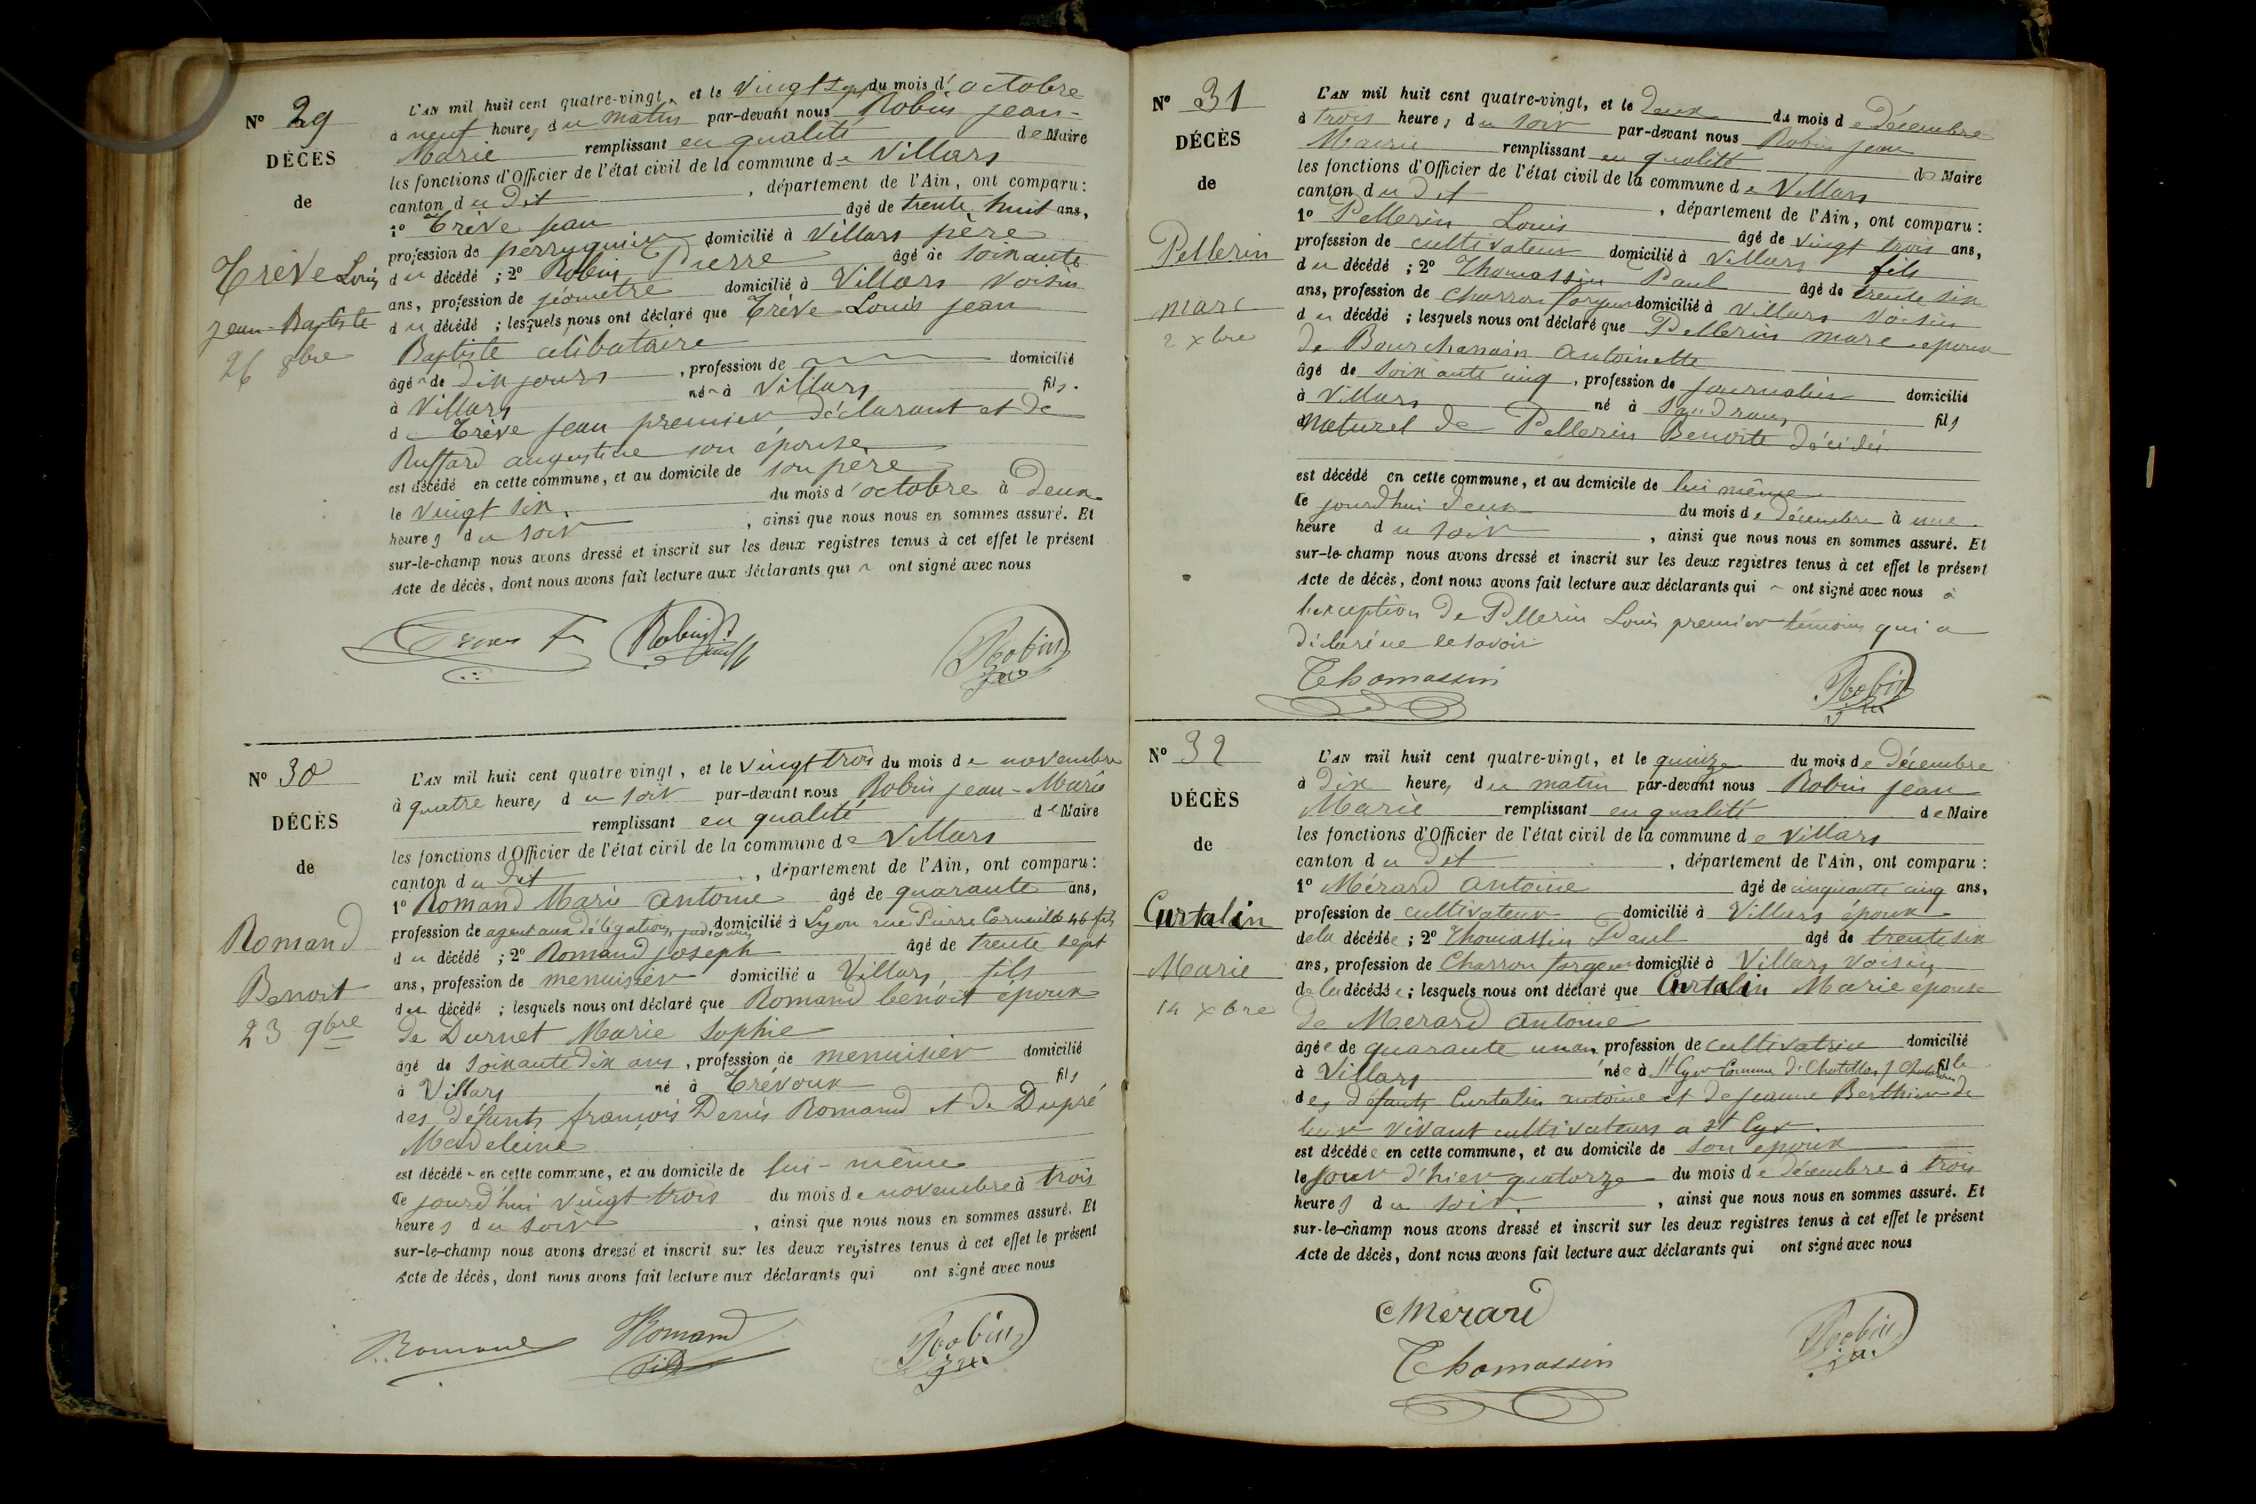 N° 29
DÉCÈS
de
Trève Louis
Jean-Baptiste
26 8bre
L'AN mil huit cent quatre-vingt, et le vingt sept du mois d'octobre
à neuf heures du matin par-devant nous Robin Jean-
Marie remplissant en qualité de Maire
les fonctions d'Officier de l'état civil de la commune de Villars
canton du dit , département de l'Ain, ont comparu :
1° Trève Jean âgé de trente huit ans,
profession de perruquier domicilié à Villars père
du décédé ; 2° Robin Pierre âgé de soixante
ans, profession de géomètre domicilié à Villars voisin
du décédé ; lesquels nous ont déclaré que Trève Louis Jean
Baptiste célibataire
âgé de dix jours , profession de domicilié
à Villars né à Villars fils
de Trève Jean premier déclarant et de
Ruffard augustine son épouse
est décédé en cette commune, et au domicile de son père
le vingt six du mois d'octobre à deux
heures du soir , ainsi que nous nous en sommes assuré. Et
sur-le-champ nous avons dressé et inscrit sur les deux registres tenus à cet effet le présent
Acte de décès, dont nous avons fait lecture aux déclarants qui ont signé avec nous
Robin
Robin
N° 30
DÉCÈS
de
Romand
Benoit
23 9bre
L'AN mil huit cent quatre vingt, et le vingt trois du mois de novembre
à quatre heures du soir par-devant nous Robin Jean-Marie
remplissant en qualité de Maire
les fonctions d'Officier de l'état civil de la commune de Villars
canton du dit , département de l'Ain, ont comparu :
1° Romand Marie antoine âgé de quarante ans,
profession de agent aux délégations judiciaires domicilié à Lyon rue Pierre Corneille 46 fils
du décédé ; 2° Romand joseph âgé de trente sept
ans, profession de menuisier domicilié à Villars fils
du décédé ; lesquels nous ont déclaré que Romand benoit époux
de Durnet Marie Sophie
âgé de soixante dix ans , profession de menuisier domicilié
à Villars né à Trévoux fils
des défunts françois Denis Romand et de Dupré
Madeleine
est décédé en cette commune, et au domicile de lui-même
Ce jourd'hui vingt trois du mois de novembre à trois
heures du soir , ainsi que nous nous en sommes assuré. Et
sur-le-champ nous avons dressé et inscrit sur les deux registres tenus à cet effet le présent
Acte de décès, dont nous avons fait lecture aux déclarants qui ont signé avec nous
Romand
Romand fils
Robin
N° 31
DÉCÈS
de
Pellerin
marc
2 xbre
L'AN mil huit cent quatre-vingt, et le deux du mois de Décembre
à trois heures du soir par-devant nous Robin Jean
Marie remplissant en qualité de Maire
les fonctions d'Officier de l'état civil de la commune de Villars
canton du dit , département de l'Ain, ont comparu :
1° Pellerin Louis âgé de vingt trois ans,
profession de cultivateur domicilié à Villars fils
du décédé ; 2° Thomassin Paul âgé de trente six
ans, profession de charron forgeur domicilié à Villars voisin
du décédé ; lesquels nous ont déclaré que Pellerin marc époux
de Bourchanain antoinette
âgé de soixante cinq , profession de journalier domicilié
à Villars né à Sandrans fils
naturel de Pellerin Benoite décédée
est décédé en cette commune, et au domicile de lui même
Ce jourdhui deux du mois de décembre à une
heure du soir , ainsi que nous nous en sommes assuré. Et
sur-le-champ nous avons dressé et inscrit sur les deux registres tenus à cet effet le présent
Acte de décès, dont nous avons fait lecture aux déclarants qui ont signé avec nous à
l'exception de Pellerin Louis premier témoins qui a
déclaré ne le savoir
Thomassin
Robin
N° 32
DÉCÈS
de
Curtalin
Marie
14 xbre
L'AN mil huit cent quatre-vingt, et le quinze du mois de Décembre
à dix heures du matin par-devant nous Robin Jean
Marie remplissant en qualité de Maire
les fonctions d'Officier de l'état civil de la commune de Villars
canton du dit , département de l'Ain, ont comparu :
1° Mérard antoine âgé de cinquante cinq ans,
profession de cultivateur domicilié à Villars époux
de la décédée ; 2° Thomassin Paul âgé de trente six
ans, profession de Charron forgeur domicilié à Villars voisin
de la décédée ; lesquels nous ont déclaré que Curtalin Marie épouse
de Merard antoine
âgée de quarante un an profession de cultivatrice domicilié
à Villars née à St Cyr Commune de Chatillon s Chalaronne fille
des défunts Curtalin antoine et de jeanne Berthier de
leur vivant cultivateurs a St Cyr.
est décédée en cette commune, et au domicile de son époux
le jour d'hier quatorze du mois de décembre à trois
heures du soir. , ainsi que nous nous en sommes assuré. Et
sur-le-champ nous avons dressé et inscrit sur les deux registres tenus à cet effet le présent
Acte de décès, dont nous avons fait lecture aux déclarants qui ont signé avec nous
Mérard
Thomassin
Robin